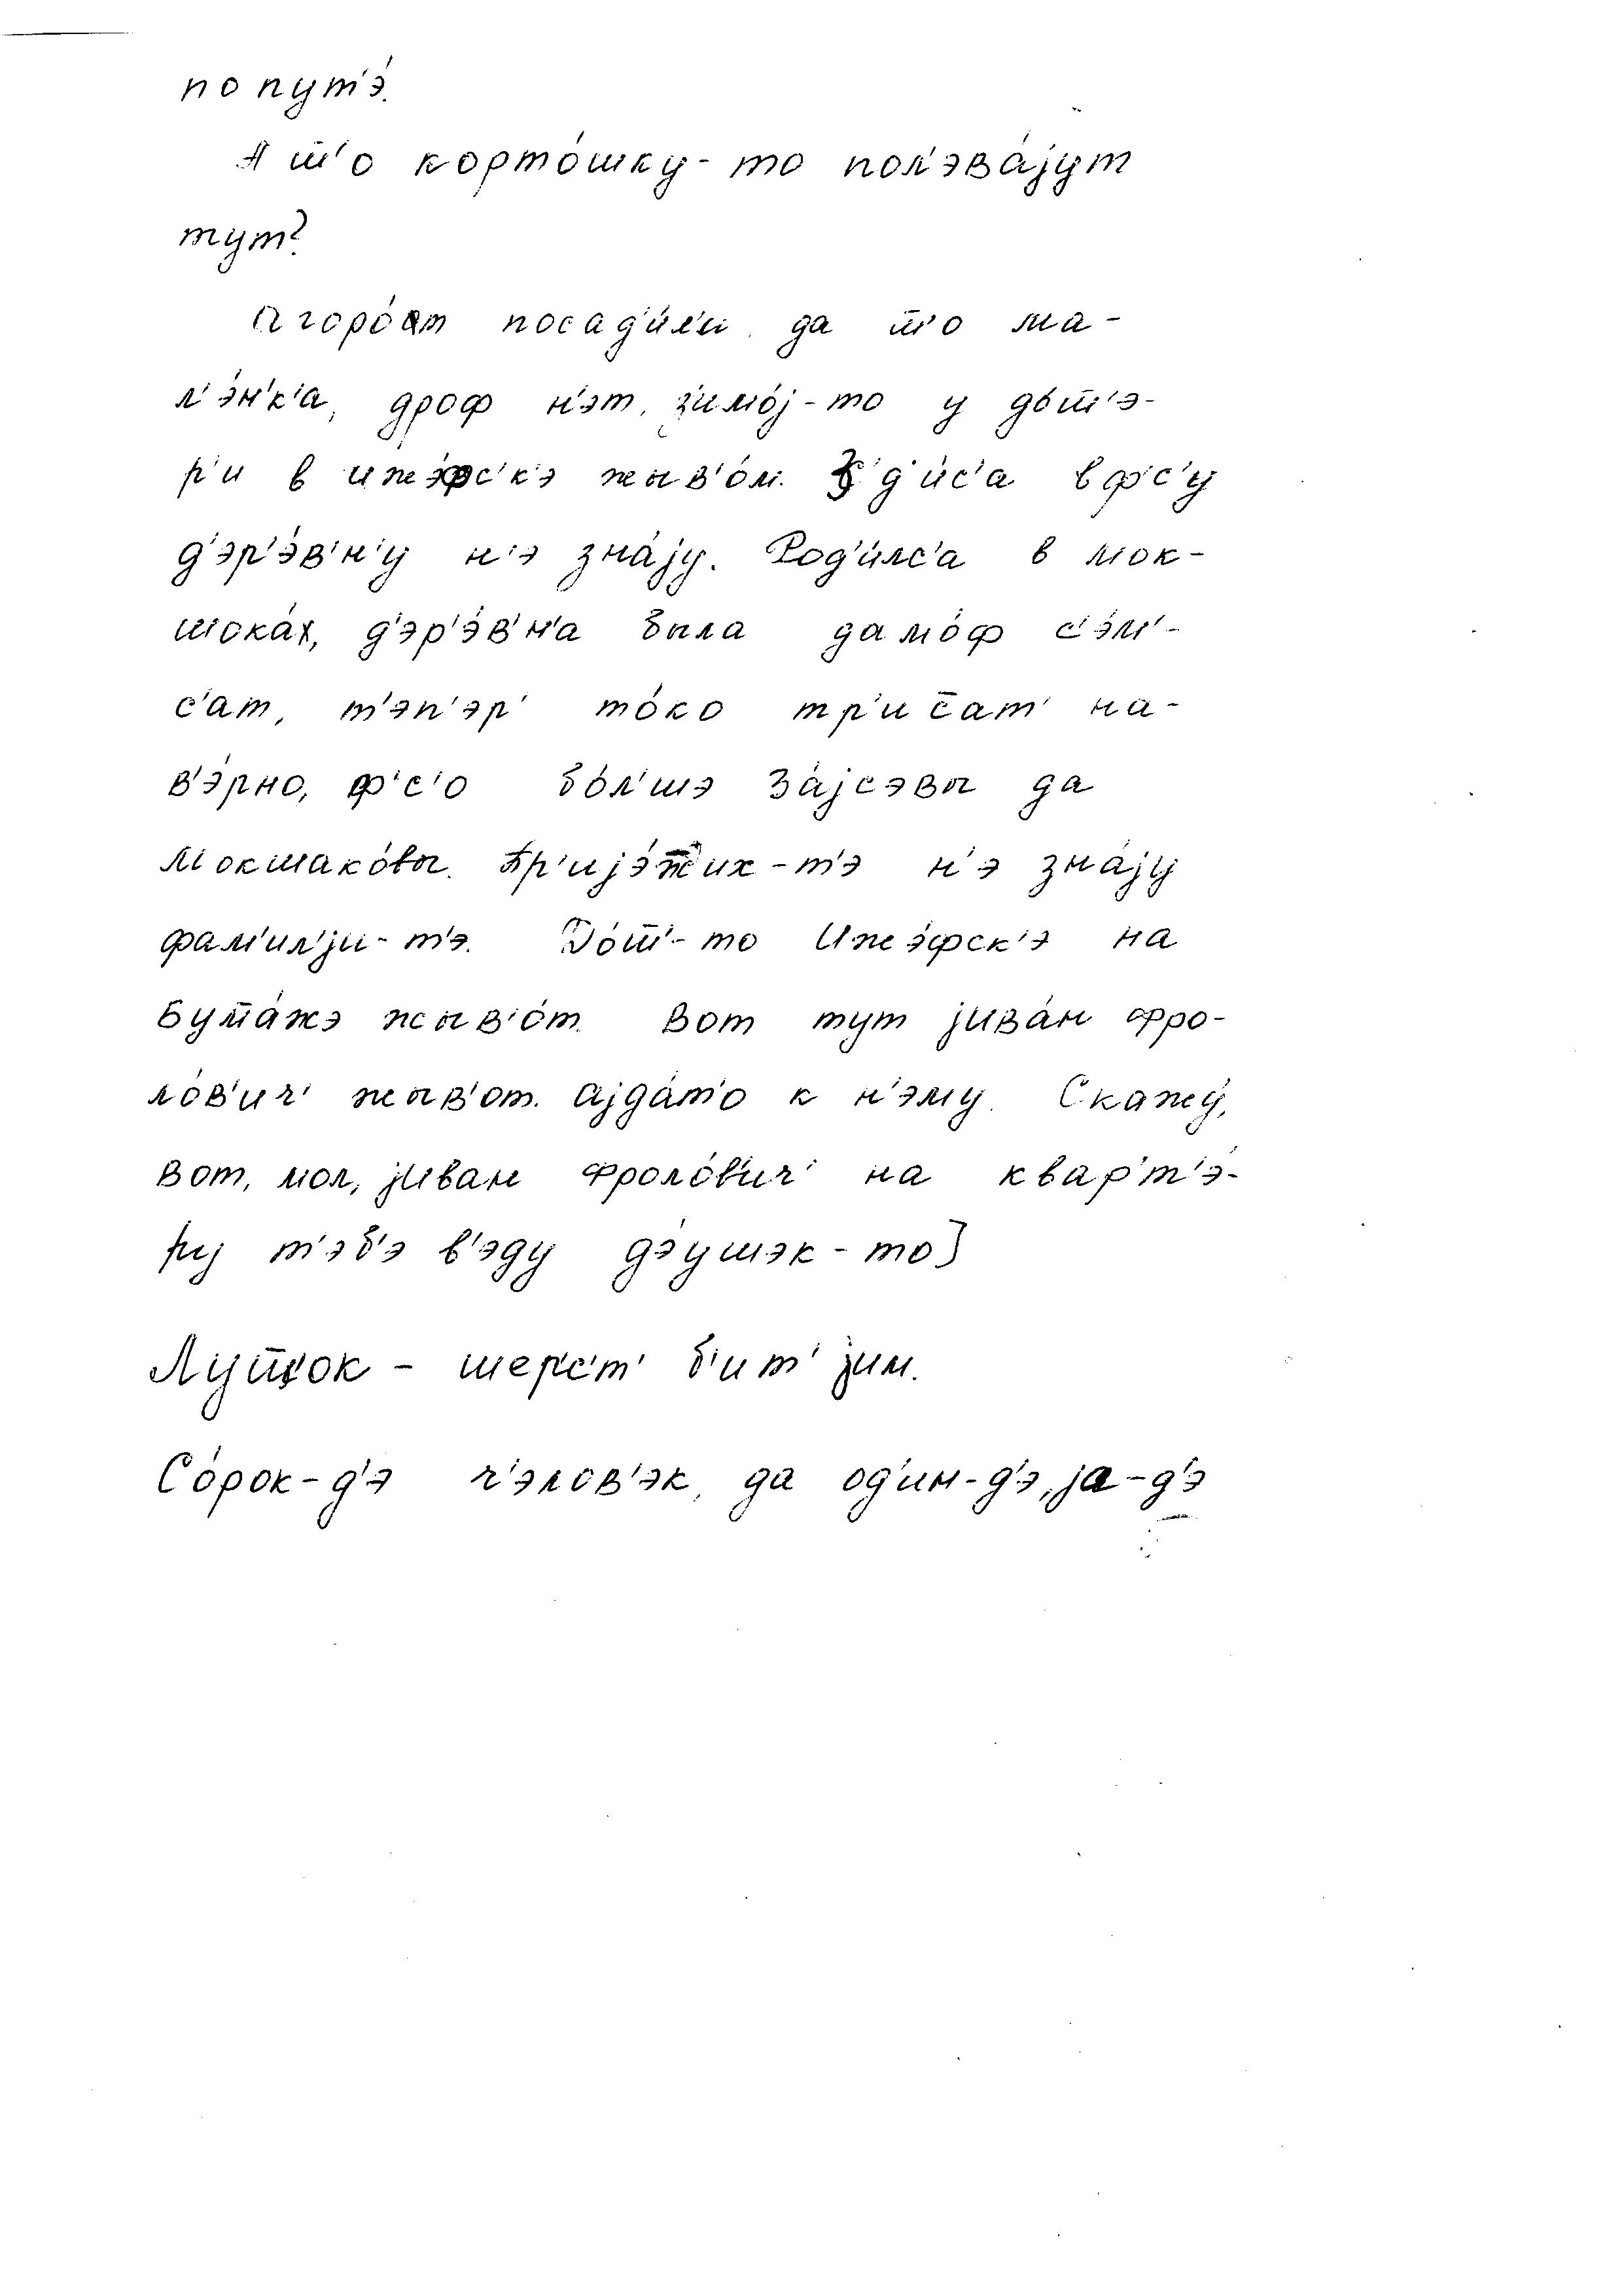 по пут'э́.
А ш̅'о корто́шку-то пол'эва́jут
тут?
Агоро́т посад'и́л'и, да ш̅'о ма-
л'э́н'к'а, дроф н'эт, з'имо́j-то у до́ш̅'э-
р'и в ижэ́фс'к'э жыв'о́м. Зд'и́с'а вф'с'у
д'эр'э́в'н'у н'э зна́jу. Род'и́лс'а в мок-
шока́х, д'эр'э́в'н'а была дамо́ф с'э́м'-
с'ат, т'эп'эр' то́ко тр'ис̅ат' на-
в'э́рно, ф'с'о бо́л'шэ За́jсэвы да
Мокшако́вы. Пр'иjэ́ж̅их-т'э н'э зна́jу
фам'ил'jи-т'э. До́ш̅'-то Ижэ́фск'э на
бума́жэ жыв'о́т. Вот тут jива́н фро-
ло́в'ич' жыв'от. Аjда́т'о к н'эму. Скажу́,
вот, мол, jиван Фроло́в'ич' на кварт'э́-
ру т'эб'э в'эду дэ́ушэк-то]
Луш̅ок – шерс'т' б'ит' jим.
Со́рок-д'э ч'элов'эк, да од'ин-д'э, jа-д'э